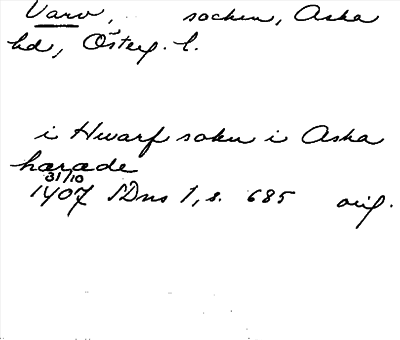 Varv, socken, Aska
hd, Österg. l.
i Hwarf sokn i Aska
harade
31/10
1407 SDns 1, s. 685 orig.